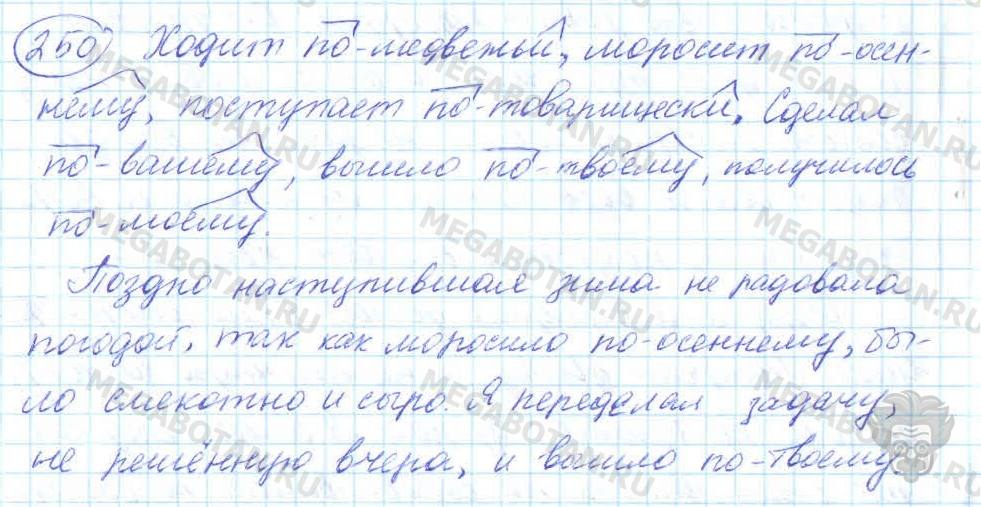 250 Ходит по-медвежьи, моросит по-осен-
нему, поступает по-товарищески. Сделал
по-вашему, вышло по-твоему, получилось
по-моему.
Поздно наступившая зима не радовала
погодой, так как моросило по-осеннему, бы-
ло слякотно и сыро. Я переделал задачу,
не решённую вчера, и вышло по-твоему.
MEGABOTAN.RU